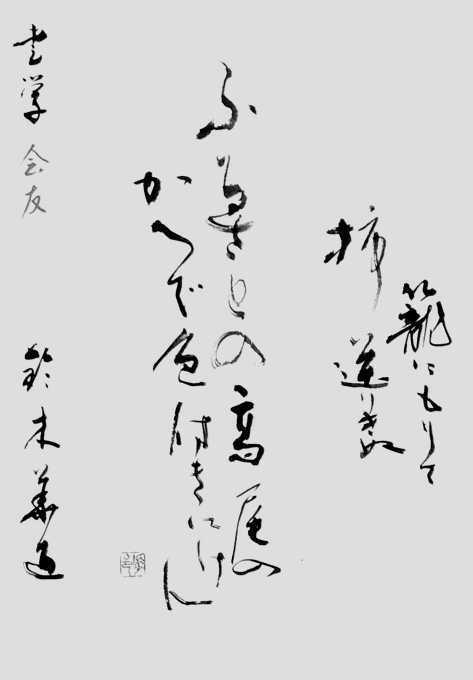 籠にもりて
柿送りきぬ
ふるさとの高尾の
かへで色付きにけん
書学 会友 鈴木華